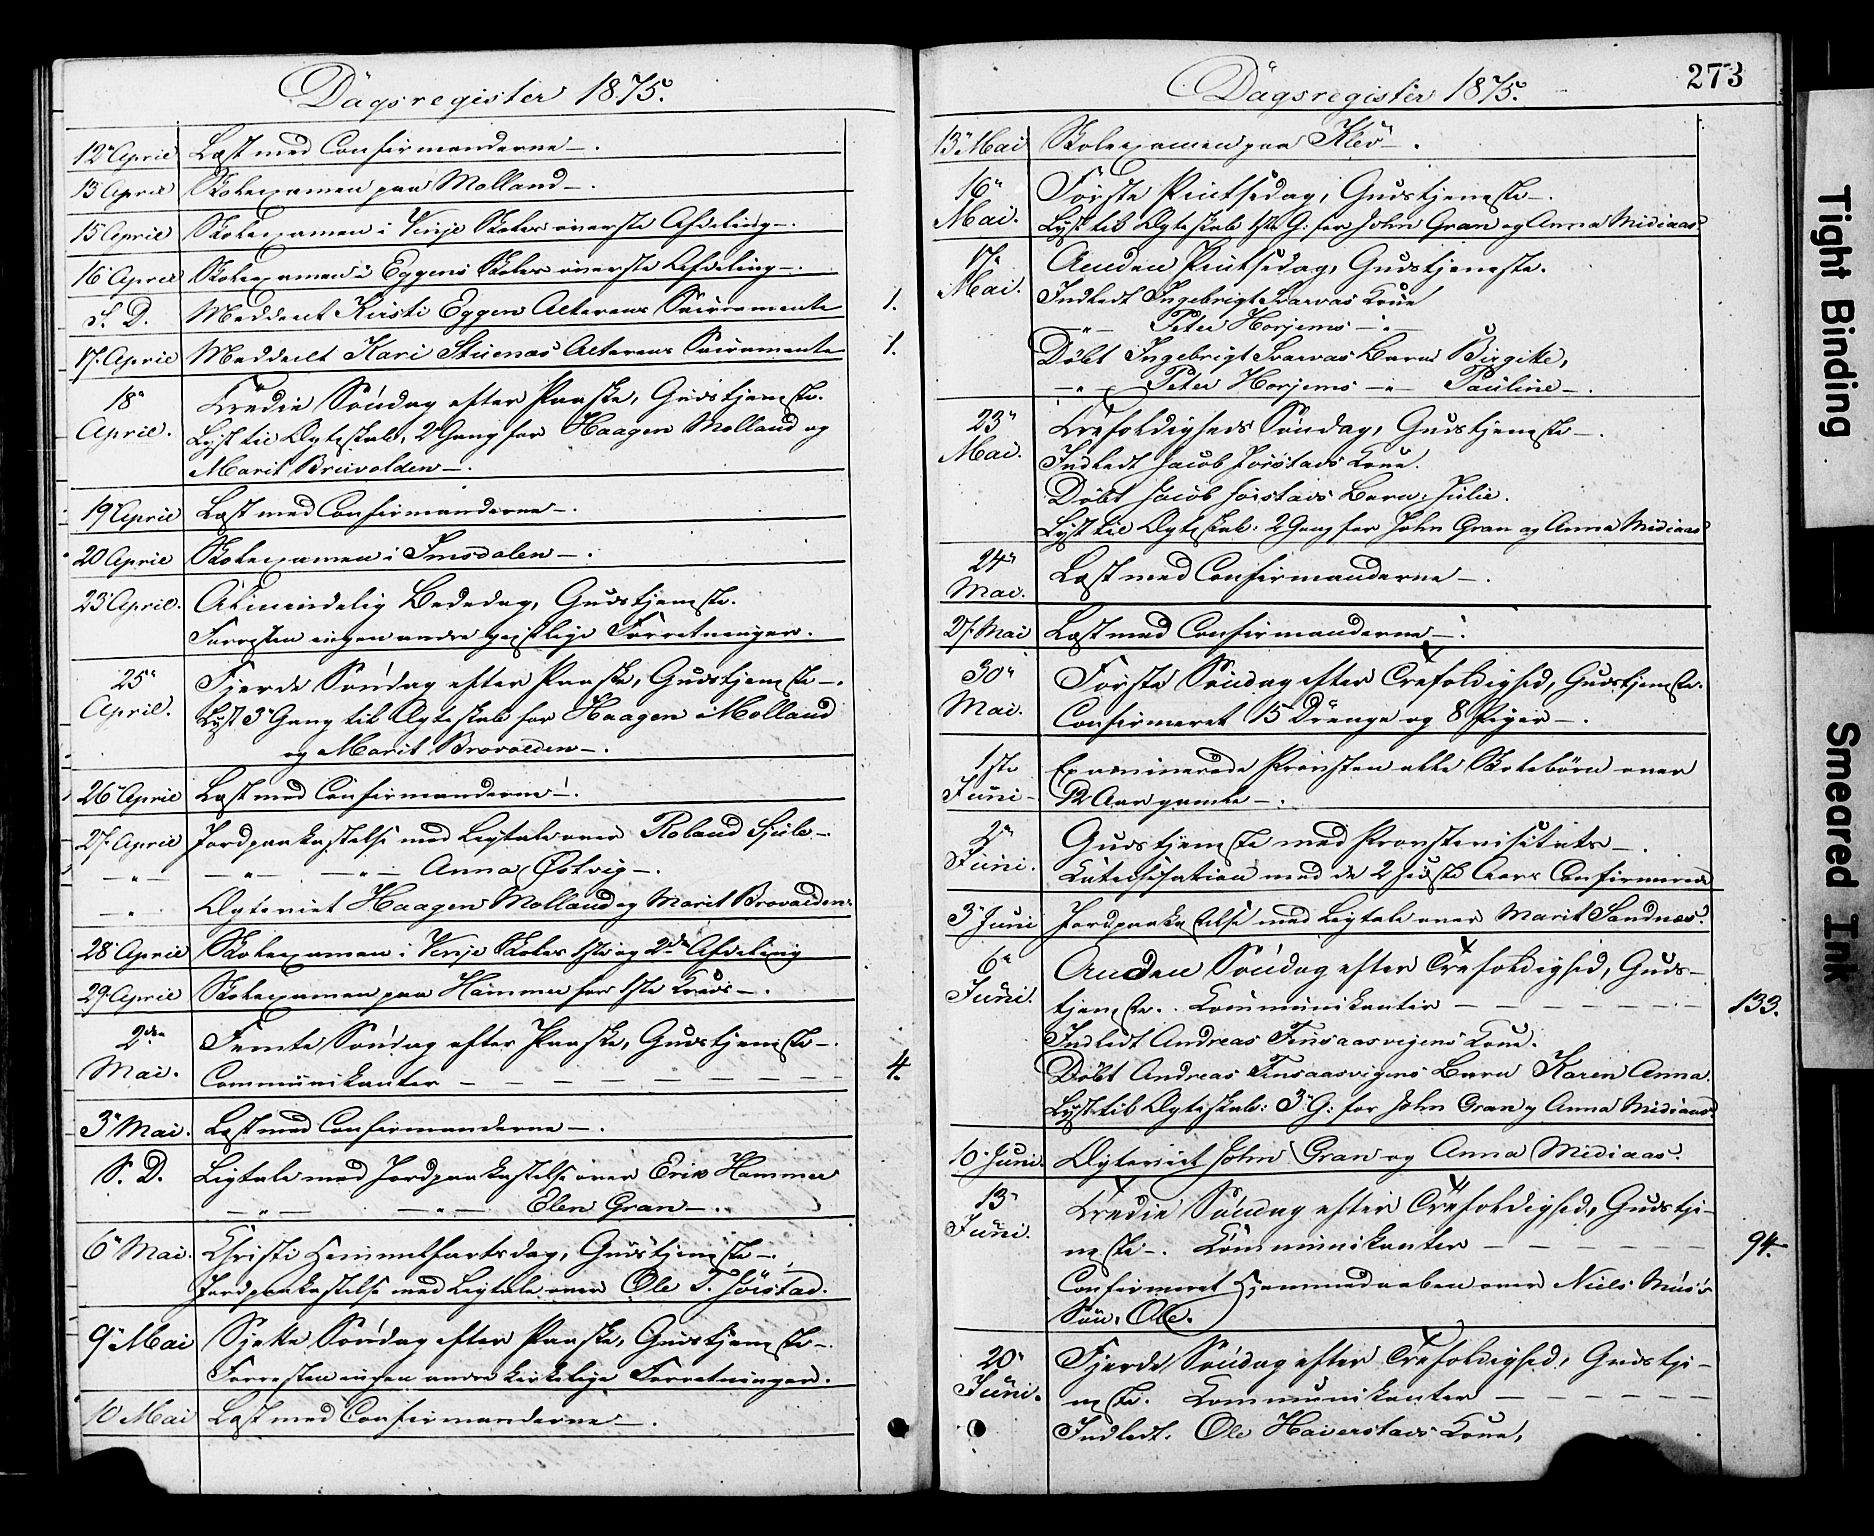 Dagsregister 1875.
12" April Læst med Confirmanderne –.
13 April Skoleexamen paa Molland –.
15 April Skoleexamen i Vinje Skoles øverste Afdeling –.
16" April Skoleexamen i Eggens Skoles øverste Afdeling –.
S. D. Meddeelt Kirsti Eggen Alterens Sacramente 1.
17. April Meddeelt Kari Stuenæs Alterens Sacramente 1.
18" April. Tredie Søndag efter Paaske, Gudstjeneste.
Lyst til Ægteskab, 2" Gang for Haagen Molland og
Marit Breivolden –.
19 April Læst med Confirmanderne –.
20 April Skoleexamen i Imsdalen –.
23" April. Almindelig Bededag, Gudstjeneste.
Forresten ingen andre geistlige Forretninger.
25" April. Fjerde Søndag efter Paaske, Gudstjeneste –.
Lyst 3" Gang til Ægteskab for Haagen Molland
og Marit Brovolden –.
26" April Læst med Confirmanderne –.
27. April Jordpaakastelse med Ligtale over Roland Sjule –.
–"– –"– –"– Anna Østvig –.
–"– Ægteviet Haagen Molland og Marit Brovolden.
28" April Skoleexamen i Vinje Skoles 1ste og 2den Afdeling
29" April Skoleexamen paa Hammer for 1ste Kreds –.
2den Mai. Femte Søndag efter Paaske, Gudstjeneste –.
Communikanter – – – – – – – – 4.
3" Mai. Læst med Confirmanderne –.
S. D. Ligtale med Jordpaakastelse over Erik Hammer
–"– –"– Elen Gran –.
6" Mai. Christi Himmelfartsdag, Gudstjeneste –.
Jordpaakastelse med Ligtale over Ole T. Jörstad.
9" Mai Sjette Søndag efter Paaske, Gudstjeneste –.
Forresten ingen andre kirkelige Forretninger.
10 Mai Læst med Confirmanderne –.
Dagsregister 1875.
273
13" Mai Skoleexamen paa Klev –.
16" Mai. Første Pintsedag, Gudstjeneste –.
Lyst til Ægteskab 1ste G: for John Gran og Anna Midiaas
17" Mai. Anden Pintsedag, Gudstjeneste.
Indledt Ingebrigt Svarvas Kone
–"– Peter Horjems –"–
Döbt Ingebrigt Svarvas Barn Birgitte,
–"– Peter Horjems –"– Pauline –.
23" Mai. Trefoldigheds Søndag, Gudstjeneste –.
Indledt Jacob Jörstads Kone.
Döbt Jacob Jörstads Barn, Julie.
Lyst til Ægteskab: 2 Gang for John Gran og Anna Midiaas
24" Mai. Læst med Confirmanderne –.
27. Mai Læst med Confirmanderne –.
30" Mai. Første Søndag efter Trefoldighed, Gudstjeneste.
Confirmeret 15 Drenge og 8 Piger –.
1ste Juni – Examinerede Provsten alle Skolebörn over
12 Aar gamle –.
2" Juni. Gudstjeneste med Provstevisitats –.
Katechisation med de 2 sidste Aars Confirmerede
3" Juni Jordpaakastelse med Ligtale over Marit Sandnes.
6" Juni. Anden Söndag efter Trefoldighed, Guds-
tjeneste. Kommunikanter – – – – – – 133.
Indledt Andreas Finsaasvigens Kone.
Döbt Andreas Finsaasvigens Barn Karen Anna.
Lyst til Ægteskab: 3" G: for John Gran og Anna Midiaas.
10. Juni. Ægteviet John Gran og Anna Midiaas.
13" Juni. Tredie Söndag efter Trefoldighed, Gudstje-
neste –. Kommunikanter – – – – – 94.
Confirmeret Hjemmedaaben over Niels
Sön, Ole.
20" Juni. Fjerde Söndag efter Trefoldighed, Gudstje-
neste. Kommunikanter – – – – – –
Indledt. Ole Haverstads Kone,
Tight Binding
Smeared Ink